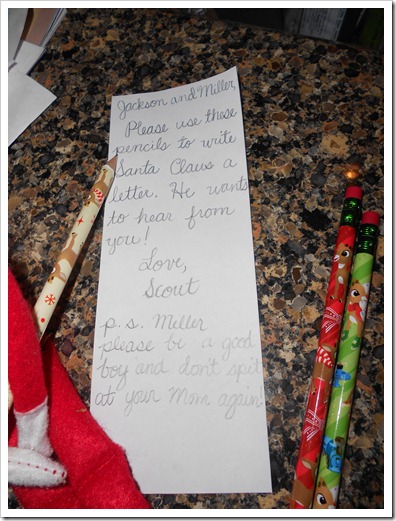 Jackson and Miller,
Please use these
pencils to write
Santa Claus a
letter. He wants
to hear from
you!
Love,
Scout
p.s. Miller
please be a good
boy and don't spit
at your Mom again!